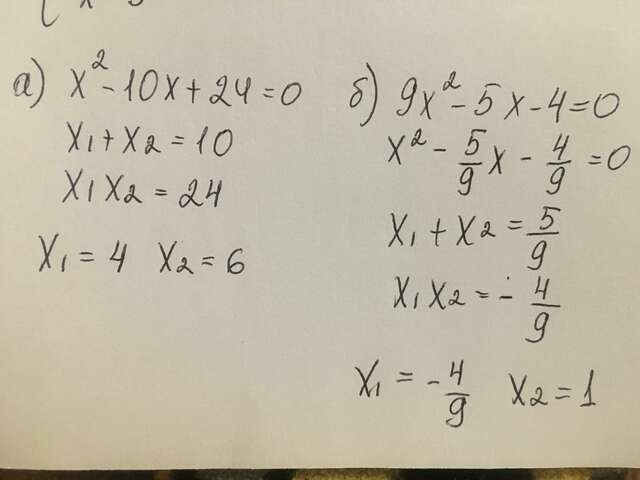 а) x² - 10x + 24 = 0
x₁ + x₂ = 10
x₁ x₂ = 24
x₁ = 4 x₂ = 6
б) 9x² - 5x - 4 = 0
x² - 5/9 x - 4/9 = 0
x₁ + x₂ = 5/9
x₁ x₂ = - 4/9
x₁ = - 4/9 x₂ = 1